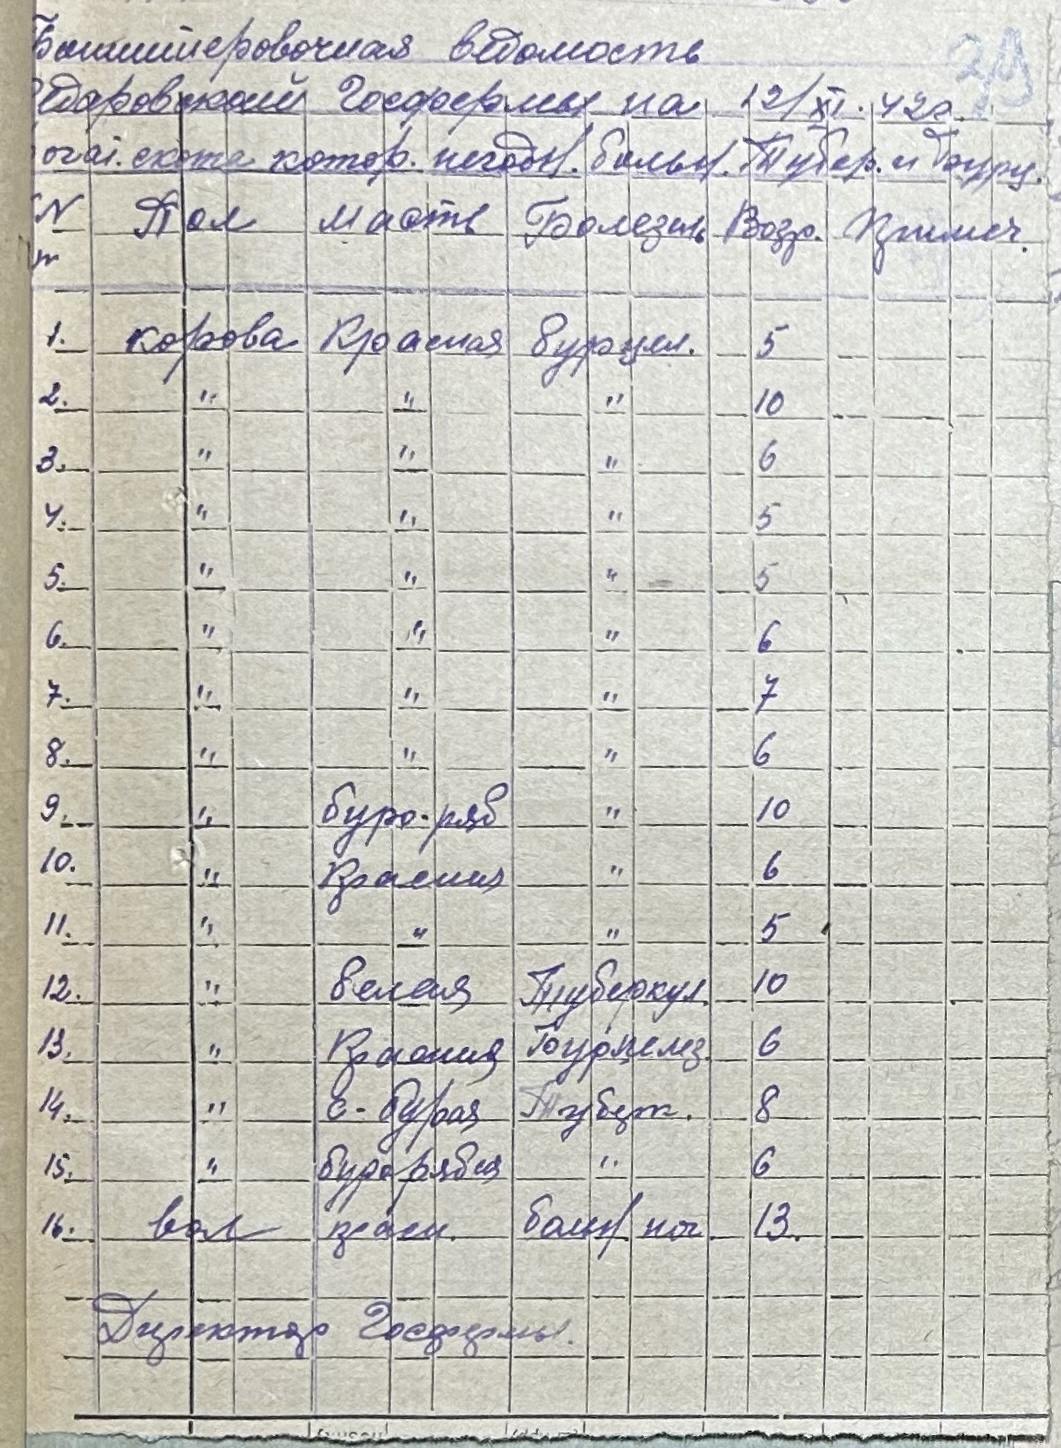 ведомость
Госфермы на 12/XI. 42г.
рогат. скота котор. негодн. больн. Тубер. и Бруц.
N Пол Масть Болезнь Возр. Примеч.
1. корова Красная Бурцел. 5
2. " " " 10
3. " " " 6
4. " " " 5
5. " " " 5
6. " " " 6
7. " " " 7
8. " " " 6
9. " буро-ряб " 10
10. " Красная " 6
11. " " " 5
12. " Белая Туберкул. 10
13. " Красная Бурцелез. 6
14. " с-бурая Туберк. 8
15. " бурорябая " 6
16. вол красн. больн ног. 13.
Директор Госфермы.